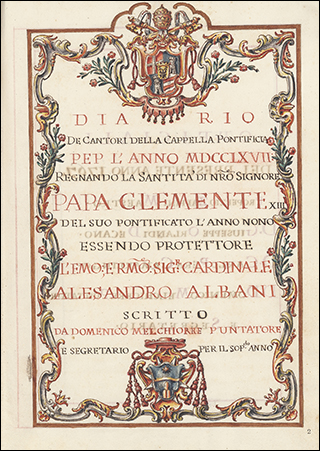 DIARIO
DE CANTORI DELLA CAPPELLA PONTIFICIA
PEP L'ANNO MDCCLXVII
REGNANDO LA SANTITÀ DI NRO SIGNORE
PAPA CLEMENTE XIII
DEL SUO PONTIFICATO L'ANNO NONO
ESSENDO PROTETTORE
L'EMO: E RMO: SIGR: CARDINALE
ALESANDRO ALBANI
SCRITTO
DA DOMENICO MELCHIORRE PUNTATORE
E SEGRETARIO PER IL SOPdto ANNO
2